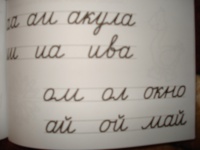 аи акула
иа ива
ом ол окно
ай ой май